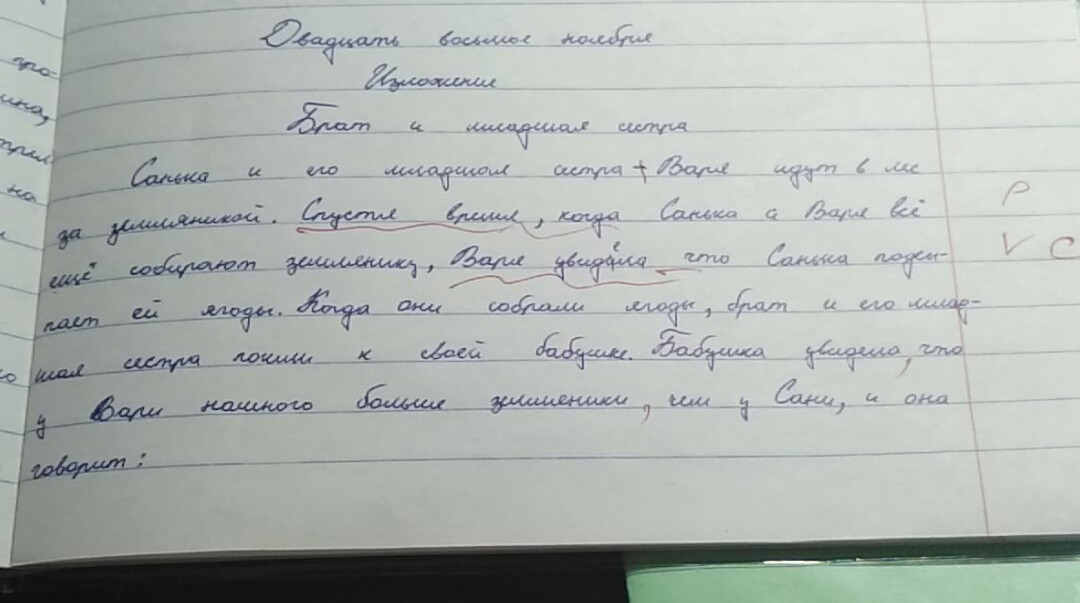 Двадцать восьмое ноября
Изложение
Брат и младшая сестра
Санька и его младшая сестра Варя идут в лес
за земляникой. Спустя время, когда Санька и Варя всё
ещё собирают землянику, Варя увидела что Санька подсы-
пает ей ягоды. Когда они собрали ягоды, брат и его млад-
шая сестра пошли к своей бабушке. Бабушка увидела, что
у Вари намного больше земляники, чем у Сани, и она
говорит:
Р
V С